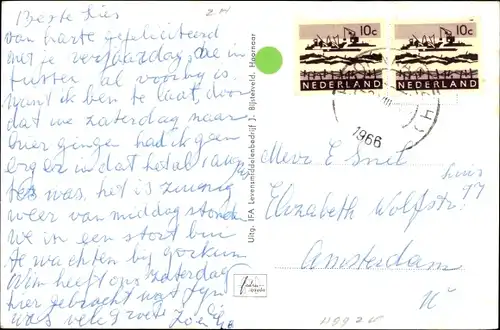 Beste Lies
van harte gefeliciteerd
met je verjaardag, die in
tussen al voorbij is
want ik ben te laat, door
dat we zaterdag naar
hier gingen had ik geen
erg er in dat het al
was, het is zuinig
weer van middag stonden
we in een stort bui
te wachten bij Gorkum
Wim heeft ons zaterdag
hier gebracht wat fijn
was veel groeten
Uitg. IFA Levensmiddelenbedrijf J. Bijsterveld, Hoornaar
10c 10c
NEDERLAND NEDERLAND
1966
Mevr E Snel
Elizabeth Wolffstr.
huis
Amsterdam